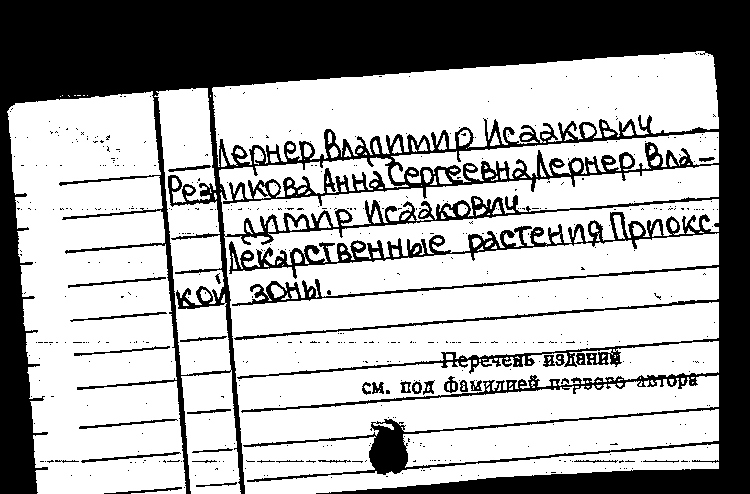 Лернер, Владимир Исаакович.
Резникова, Анна Сергеевна, Лернер, Вла-
димир Исаакович.
Лекарственные растения Приокс-
кой зоны.
Перечень изданий
см. под фамилией первого автора